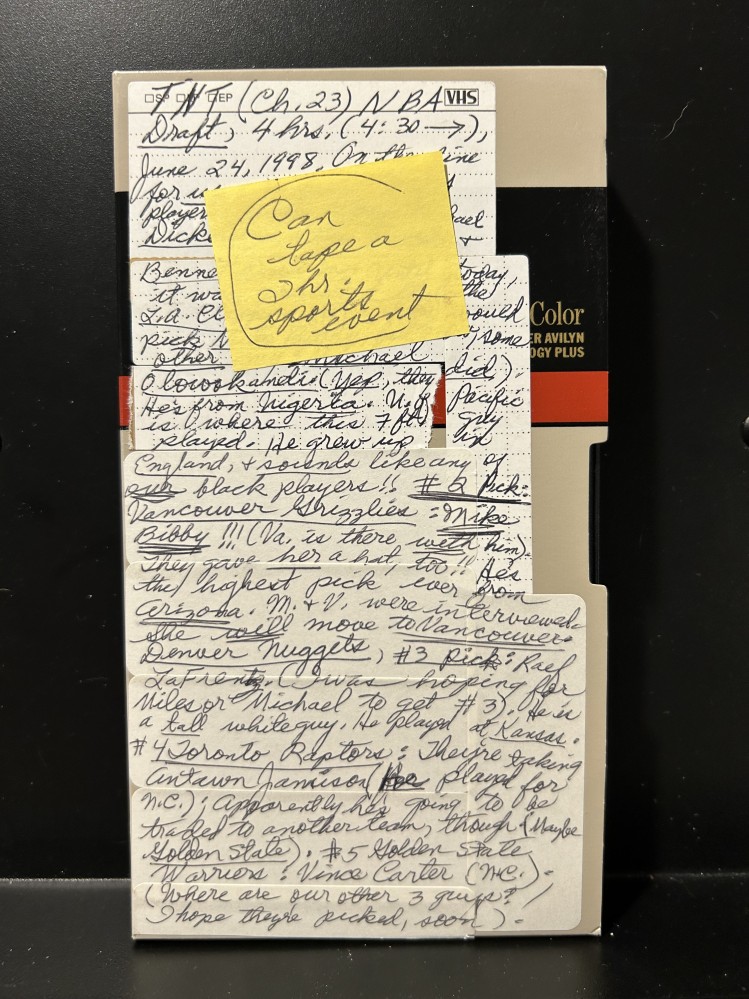 □SP □LP □EP VHS
TNT (Ch. 23) NBA
Draft, 4 hrs. (4:30 →),
June 24, 1998. On the line
for us
player
Dick ael
&
Can
tape a
2 hr.
sports
event
Benne today,
it wa the
L.A. Cl would
pick M , some
other Michael
Olowokandi. (Yep, they did).
He's from Nigeria. U. of Pacific
is where this 7 ft. guy
played. He grew up in
England, & sounds like any of
our black players!! #2 Pick:
Vancouver Grizzlies = Mike
Bibby!!! (Va. is there with him).
They gave her a hat, too!! He's
the highest pick ever from
Arizona. M. & V. were interviewed.
She will move to Vancouver.
Denver Nuggets, #3 pick: Raef
LaFrentz. (I was hoping for
Miles or Michael to get #3). He is
a tall white guy. He played at Kansas.
#4 Toronto Raptors: They're taking
Antawn Jamison (he played for
N.C.); apparently he's going to be
traded to another team, though (Maybe
Golden State). #5 Golden State
Warriors: Vince Carter (N.C.).
(Where are our other 3 guys?!
I hope they're picked, soon).
Color
ER AVILYN
OGY PLUS